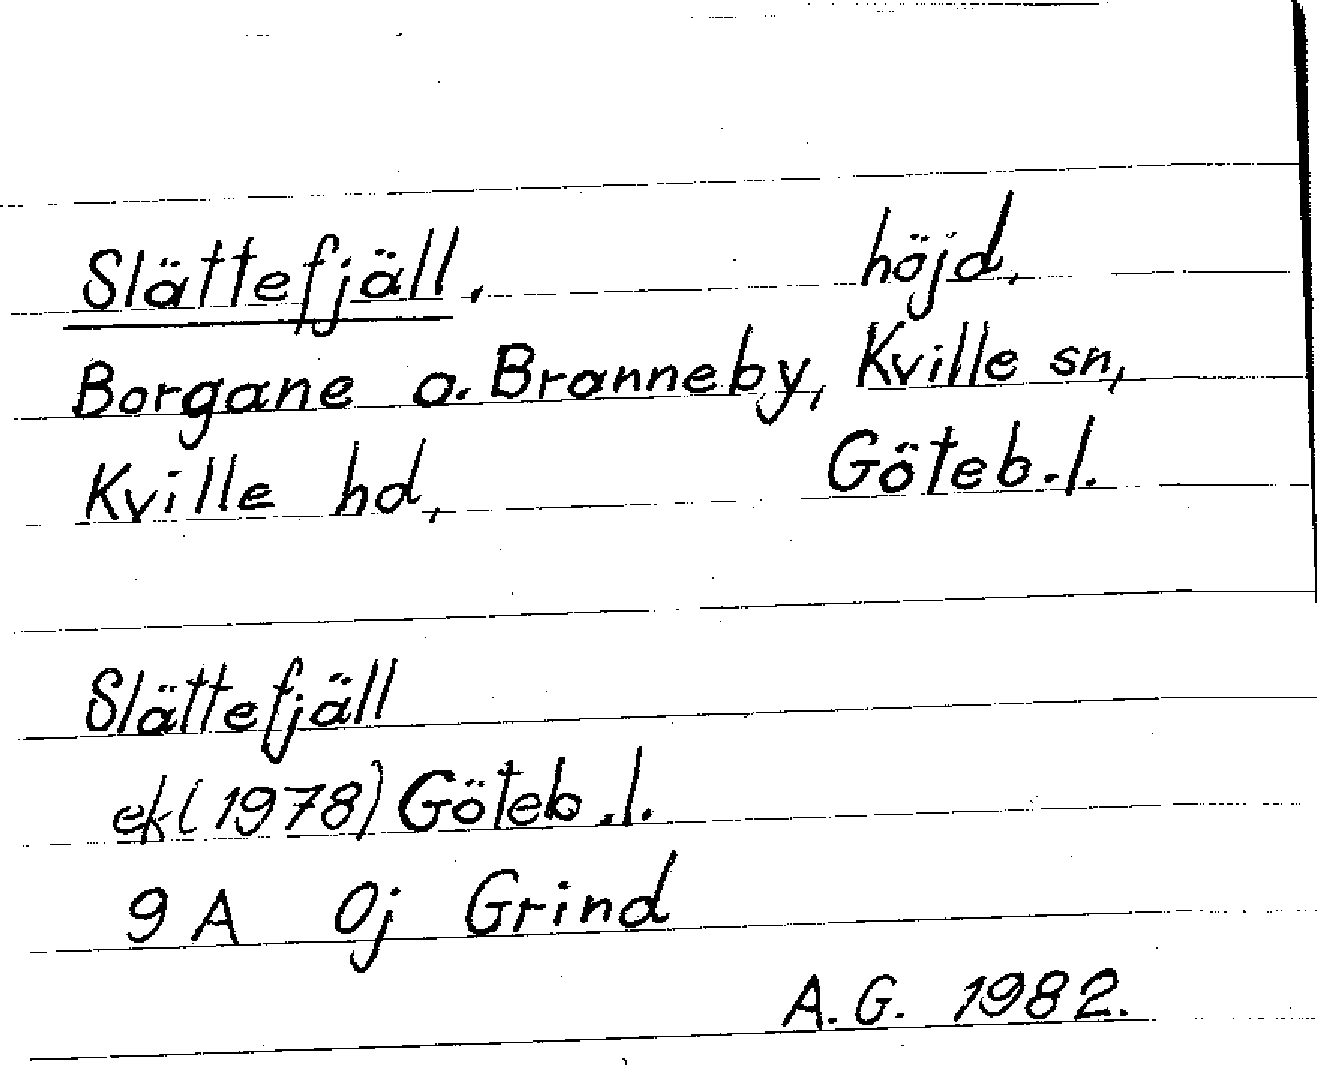 Slättefjäll, höjd,
Borgane o. Branneby, Kville sn,
Kville hd, Göteb.l.
Slättefjäll
ek(1978) Göteb.l.
9 A 0j Grind
A.G. 1982.